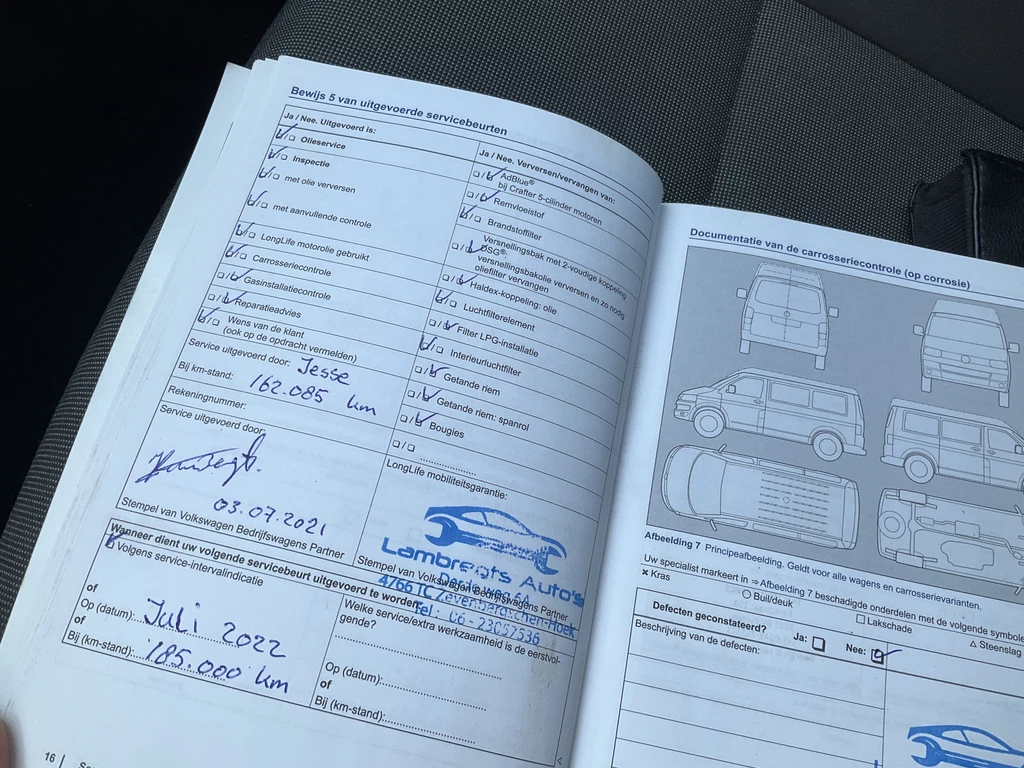 Bewijs 5 van uitgevoerde servicebeurten
Ja / Nee. Uitgevoerd is:
Olieservice
Inspectie
met olie verversen
met aanvullende controle
LongLife motorolie gebruikt
Carrosseriecontrole
Gasinstallatiecontrole
Reparatieadvies
Wens van de klant
(ook op de opdracht vermelden)
Service uitgevoerd door: Jesse
Bij km-stand: 162.085 km
Rekeningnummer:
Service uitgevoerd door:
03.07.2021
Stempel van Volkswagen Bedrijfswagens Partner
Ja / Nee. Verversen/vervangen van:
AdBlue®
bij Crafter 5-cilinder motoren
Remvloeistof
Brandstoffilter
Versnellingsbak met 2-voudige koppeling
DSG®:
versnellingsbakolie verversen en zo nodig
oliefilter vervangen
Haldex-koppeling: olie
Luchtfilterelement
Filter LPG-installatie
Interieurluchtfilter
Getande riem
Getande riem: spanrol
Bougies
LongLife mobiliteitsgarantie:
Lambregts Auto's
Stempel van Volkswagen Bedrijfswagens Partner
4766 TC Zevenbergschen-Hoek
Tel.: 06 - 23057536
Wanneer dient uw volgende servicebeurt uitgevoerd te worden?
Volgens service-intervalindicatie
of
Op (datum): Juli 2022
of
Bij (km-stand): 185.000 km
Welke service/extra werkzaamheid is de eerstvol-
gende?
Op (datum):
of
Bij (km-stand):
16
Documentatie van de carrosseriecontrole (op corrosie)
Afbeelding 7 Principeafbeelding. Geldt voor alle wagens en carrosserievarianten.
Uw specialist markeert in ⇒ Afbeelding 7 beschadigde onderdelen met de volgende symbole
× Kras
○ Buil/deuk
□ Lakschade
△ Steenslag
Defecten geconstateerd? Ja: Nee:
Beschrijving van de defecten: